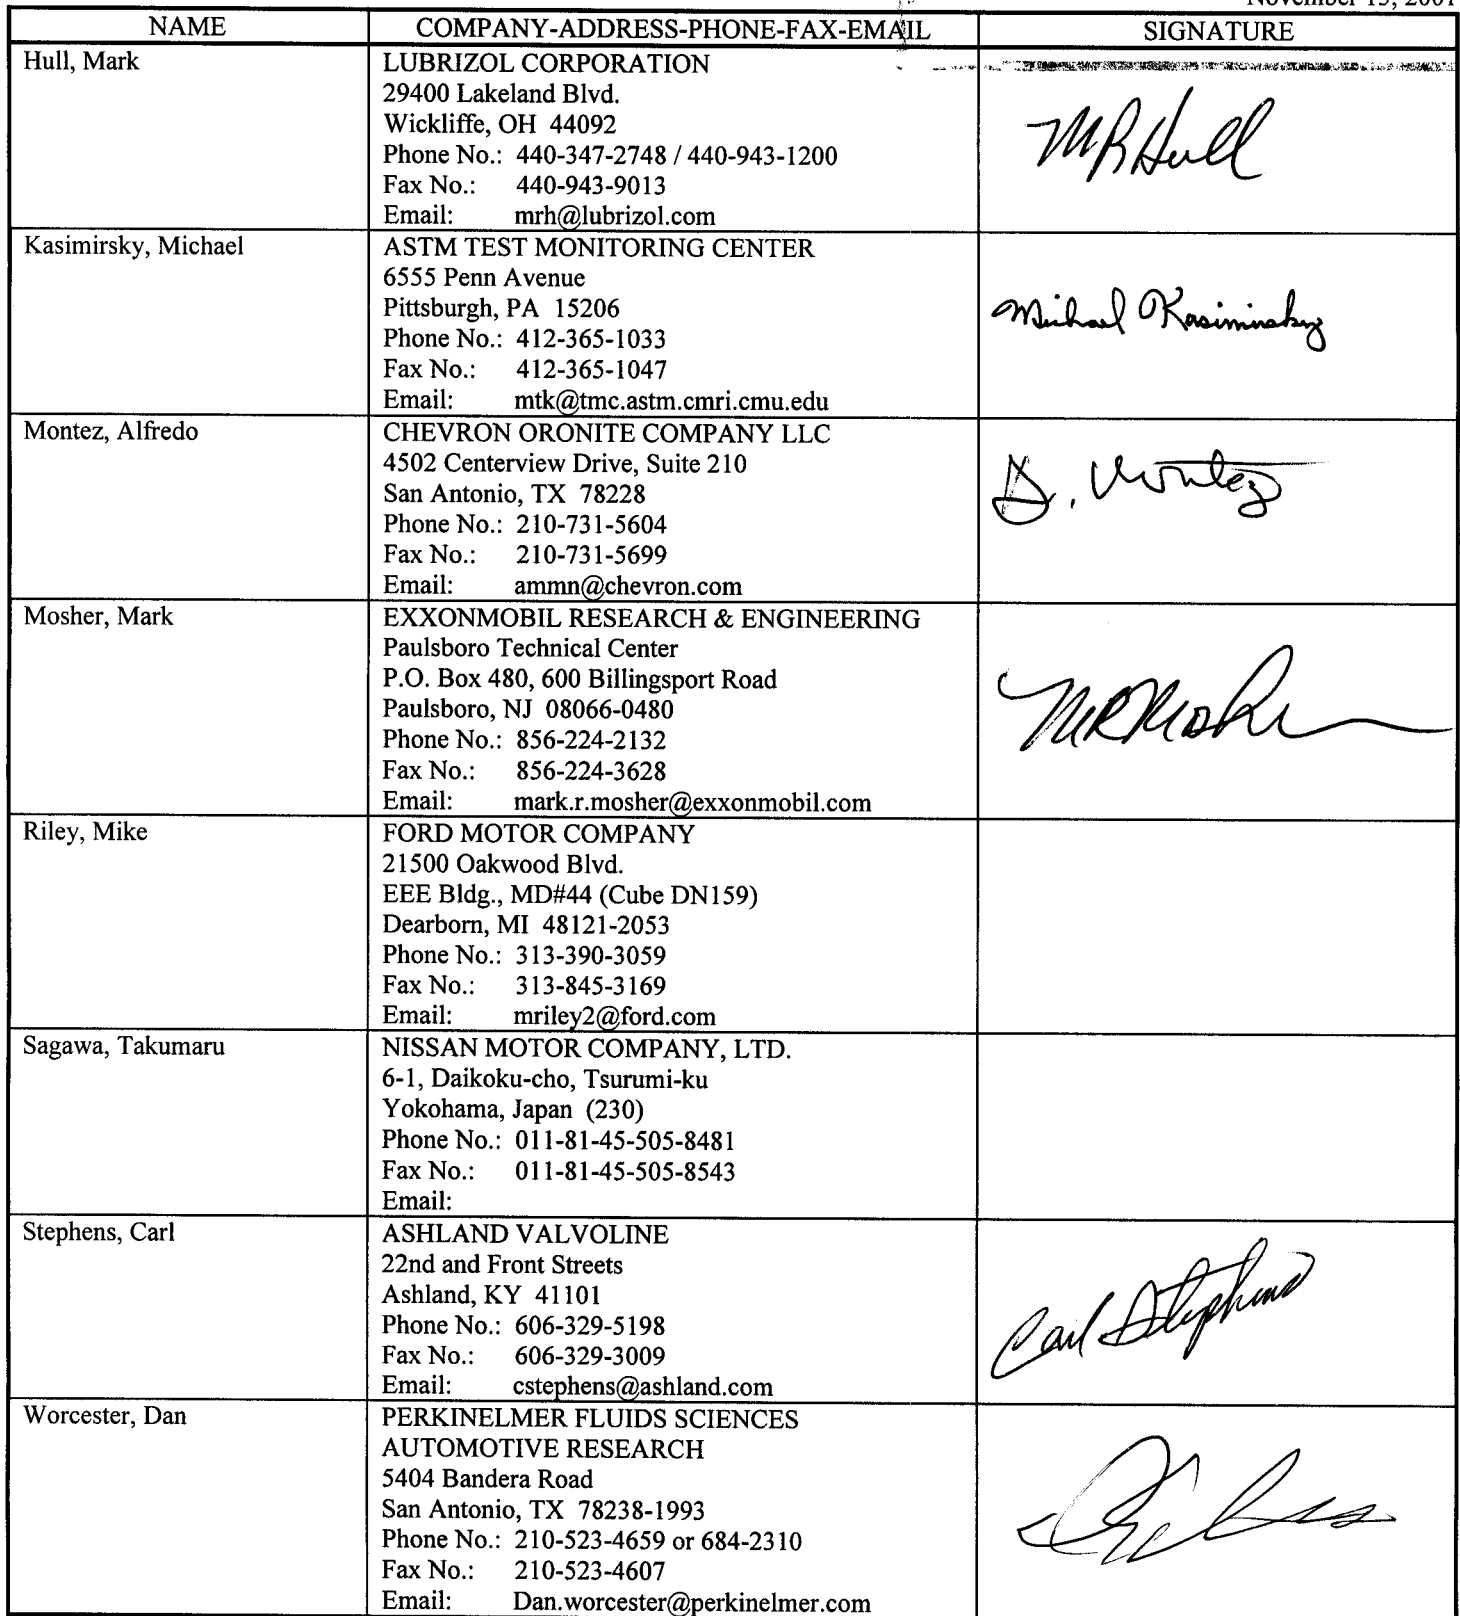 November 13, 2001
NAME COMPANY-ADDRESS-PHONE-FAX-EMAIL SIGNATURE
Hull, Mark LUBRIZOL CORPORATION
29400 Lakeland Blvd.
Wickliffe, OH 44092
Phone No.: 440-347-2748 / 440-943-1200
Fax No.: 440-943-9013
Email: mrh@lubrizol.com
MR Hull
Kasimirsky, Michael ASTM TEST MONITORING CENTER
6555 Penn Avenue
Pittsburgh, PA 15206
Phone No.: 412-365-1033
Fax No.: 412-365-1047
Email: mtk@tmc.astm.cmri.cmu.edu
Michael Kasimirsky
Montez, Alfredo CHEVRON ORONITE COMPANY LLC
4502 Centerview Drive, Suite 210
San Antonio, TX 78228
Phone No.: 210-731-5604
Fax No.: 210-731-5699
Email: ammn@chevron.com
A. Montez
Mosher, Mark EXXONMOBIL RESEARCH & ENGINEERING
Paulsboro Technical Center
P.O. Box 480, 600 Billingsport Road
Paulsboro, NJ 08066-0480
Phone No.: 856-224-2132
Fax No.: 856-224-3628
Email: mark.r.mosher@exxonmobil.com
MR Mosher
Riley, Mike FORD MOTOR COMPANY
21500 Oakwood Blvd.
EEE Bldg., MD#44 (Cube DN159)
Dearborn, MI 48121-2053
Phone No.: 313-390-3059
Fax No.: 313-845-3169
Email: mriley2@ford.com
Sagawa, Takumaru NISSAN MOTOR COMPANY, LTD.
6-1, Daikoku-cho, Tsurumi-ku
Yokohama, Japan (230)
Phone No.: 011-81-45-505-8481
Fax No.: 011-81-45-505-8543
Email:
Stephens, Carl ASHLAND VALVOLINE
22nd and Front Streets
Ashland, KY 41101
Phone No.: 606-329-5198
Fax No.: 606-329-3009
Email: cstephens@ashland.com
Carl Stephens
Worcester, Dan PERKINELMER FLUIDS SCIENCES
AUTOMOTIVE RESEARCH
5404 Bandera Road
San Antonio, TX 78238-1993
Phone No.: 210-523-4659 or 684-2310
Fax No.: 210-523-4607
Email: Dan.worcester@perkinelmer.com